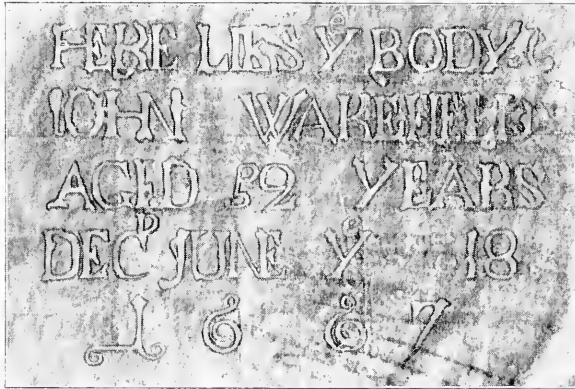 HERE LIES Yᵉ BODY
IOHN WAKEFIELD
AGED 52 YEARS
DECᴰ JUNE Yᵉ 18